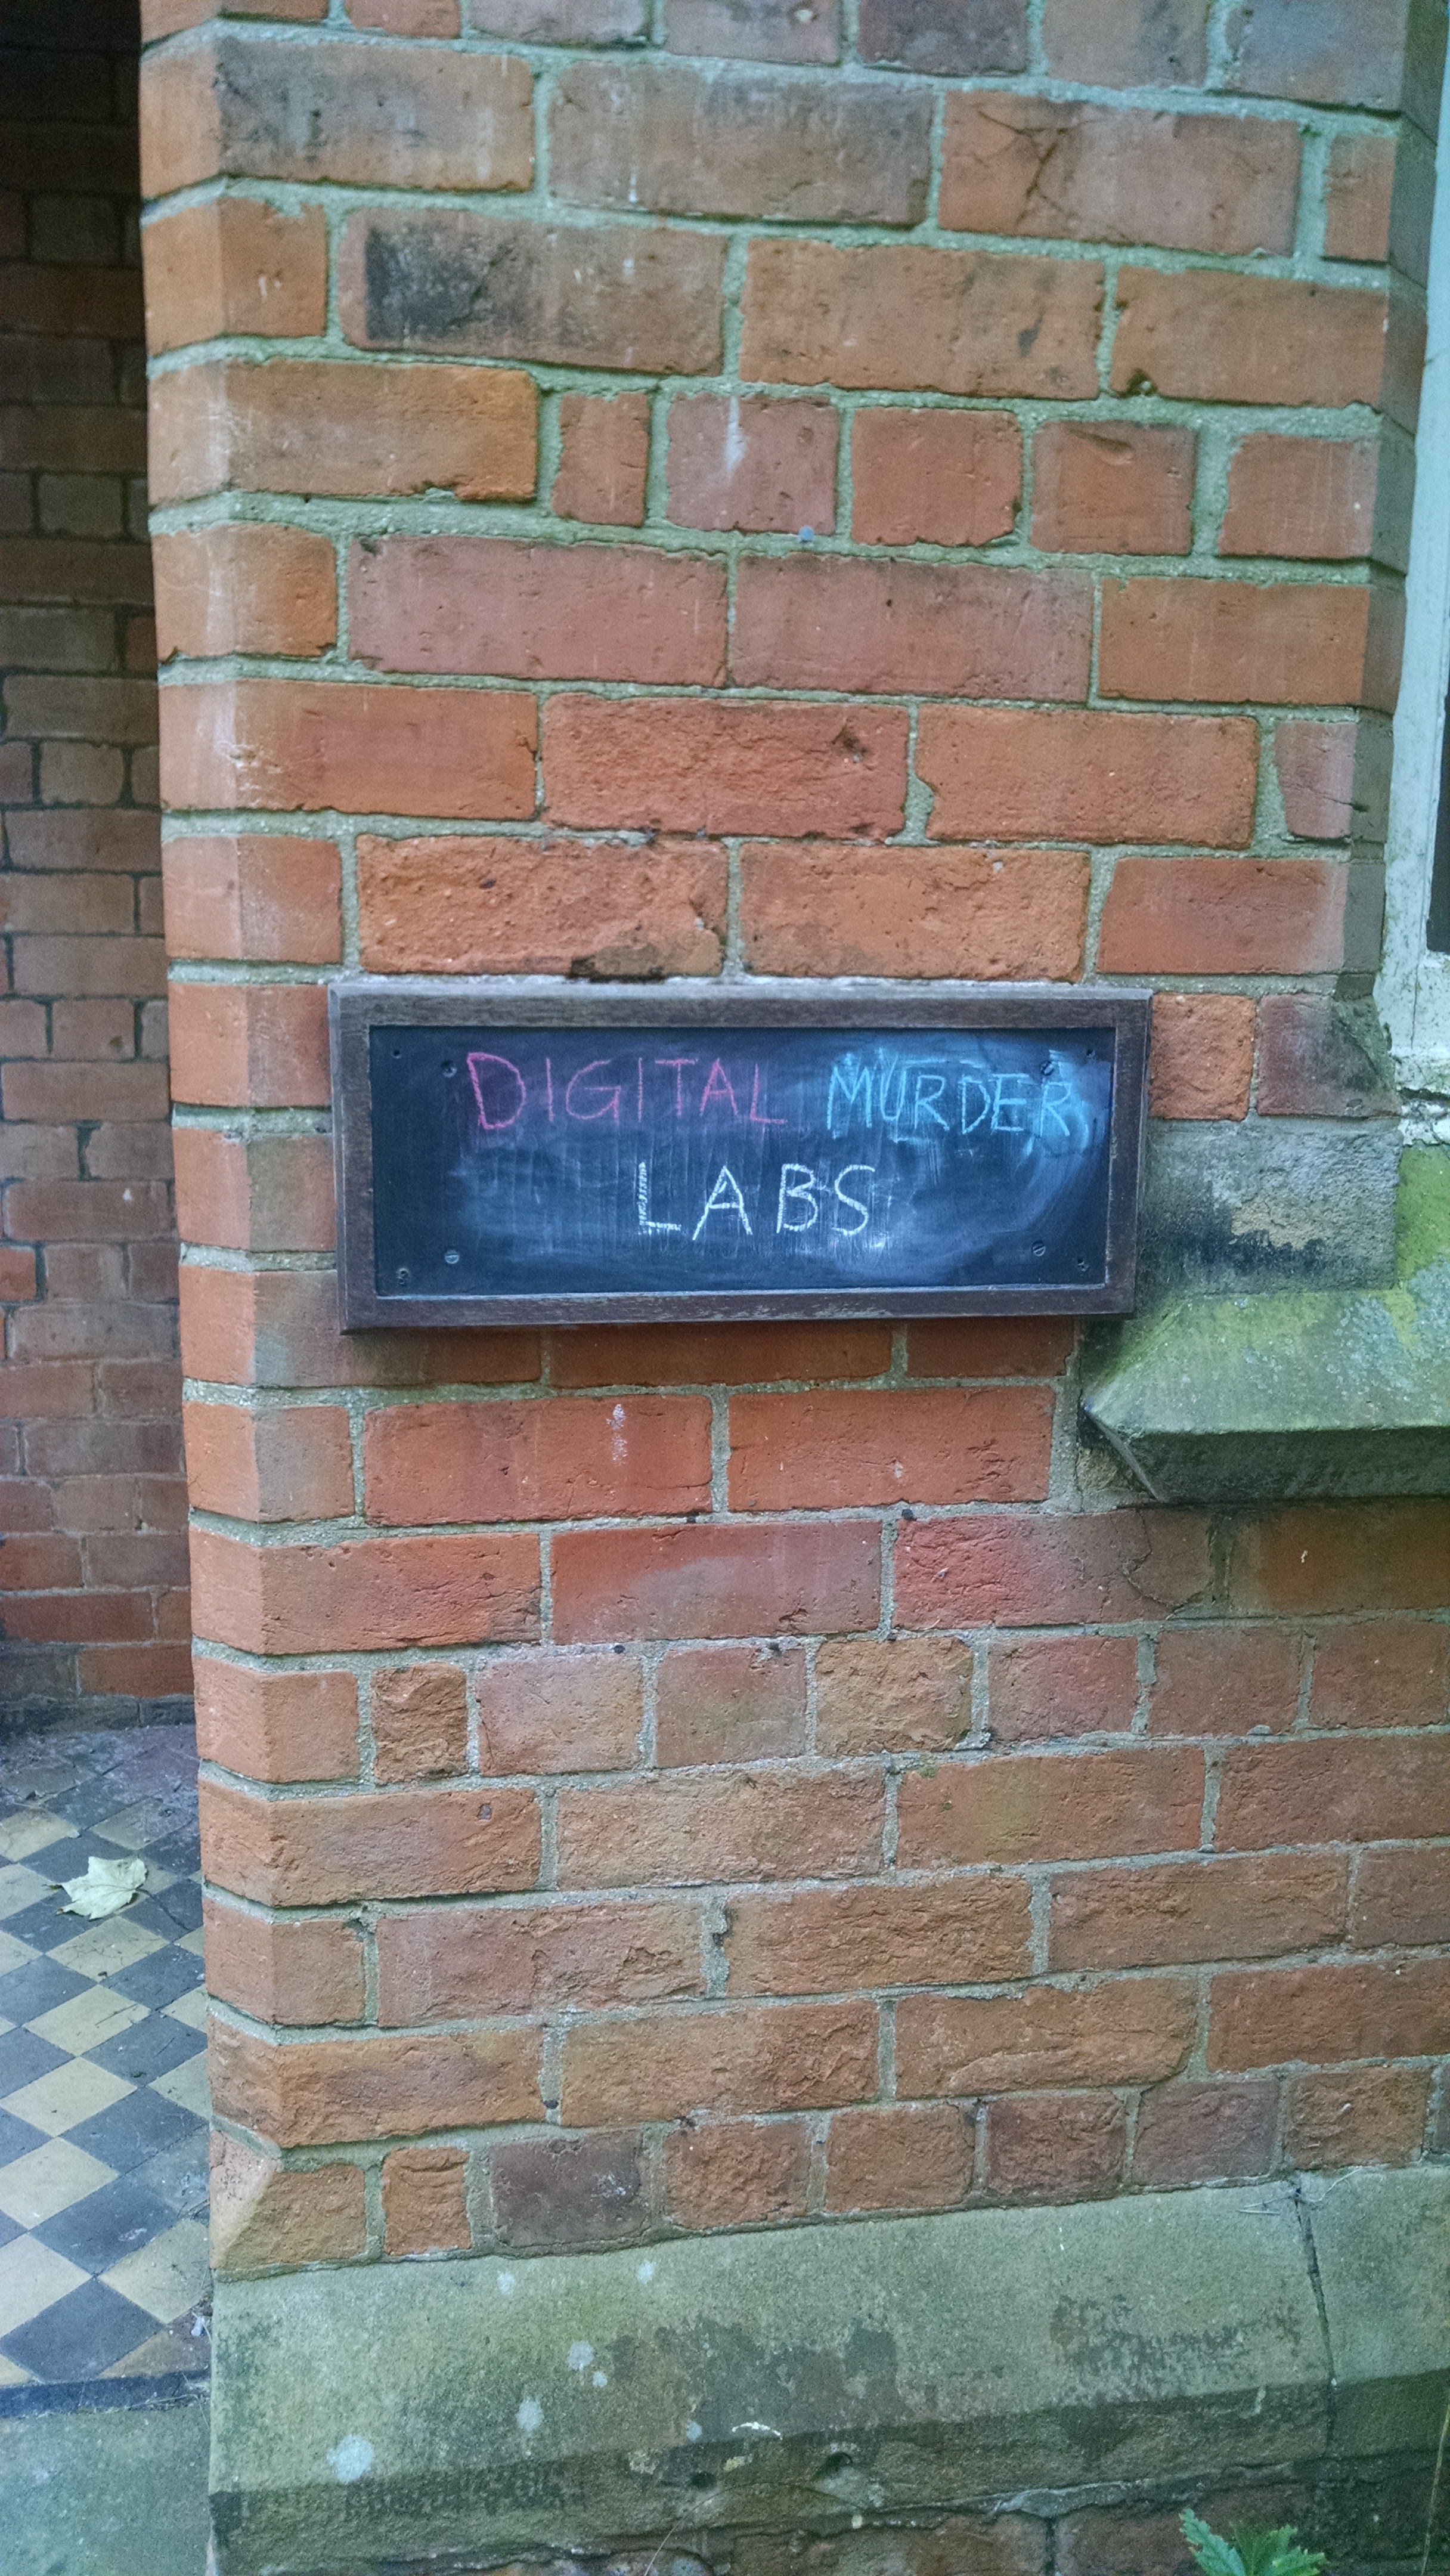 DIGITAL MURDER
LABS